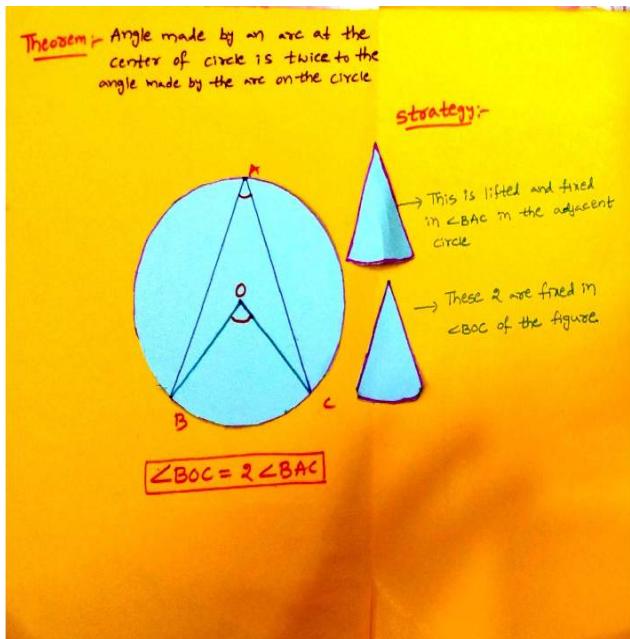 Theorem:- Angle made by an arc at the
center of circle is twice to the
angle made by the arc on the circle
Strategy:-
A
O
B
C
→ This is lifted and fixed
in ∠BAC in the adjacent
circle
→ These 2 are fixed in
∠BOC of the figure.
∠BOC = 2 ∠BAC